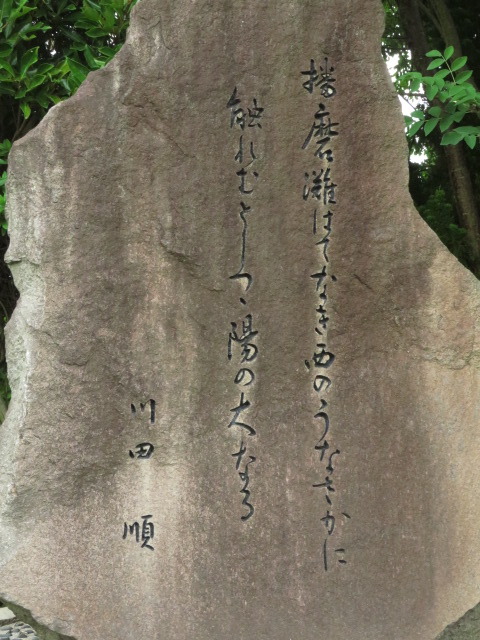 播磨灘はてなき西のうなさかに
触れむとしつゝ陽の大なる
川田 順